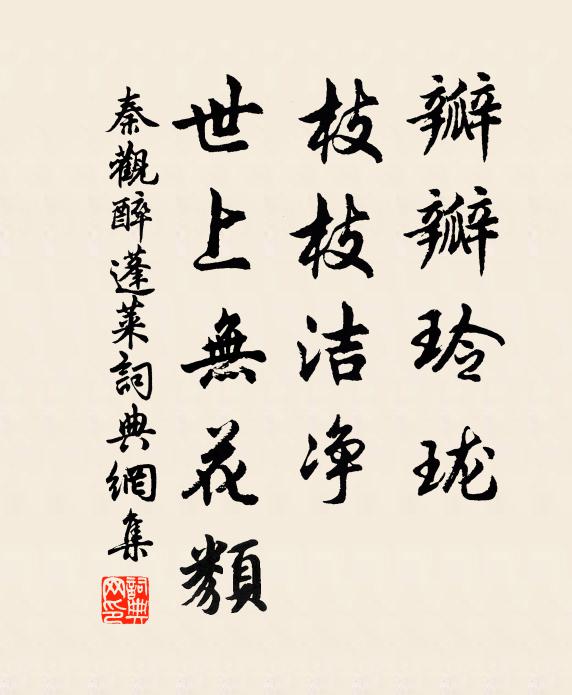 瓣瓣玲珑
枝枝洁净
世上無花類
秦觀醉蓬莱詞典網集
詞典网印